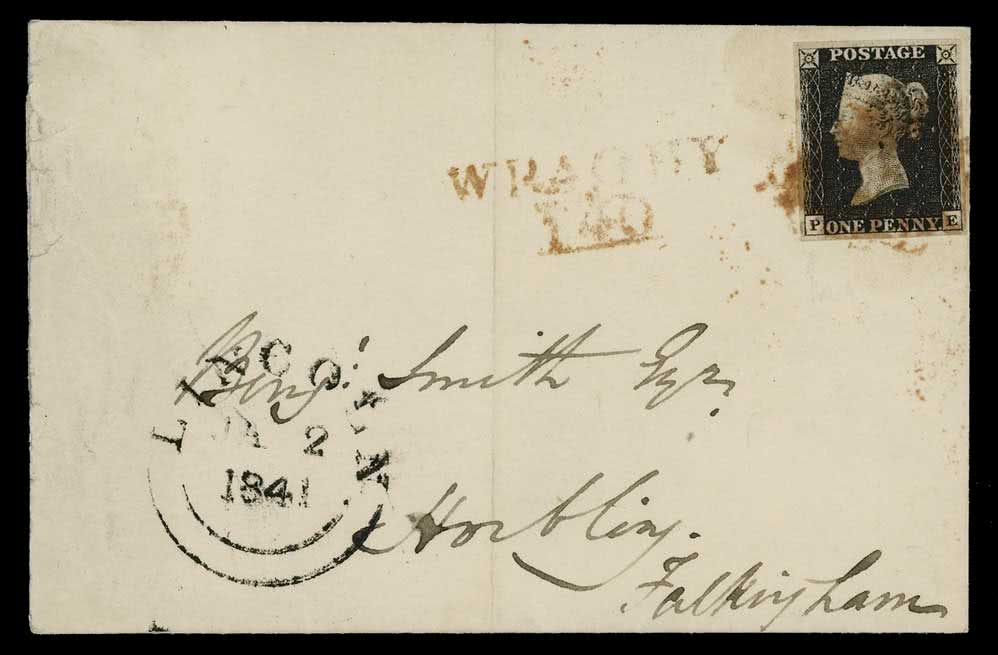 POSTAGE
P ONE PENNY E
WRAGBY
140
Benjn: Smith Esqr.
LINCOLN
JA 2
1841
Horbling.
Falkingham